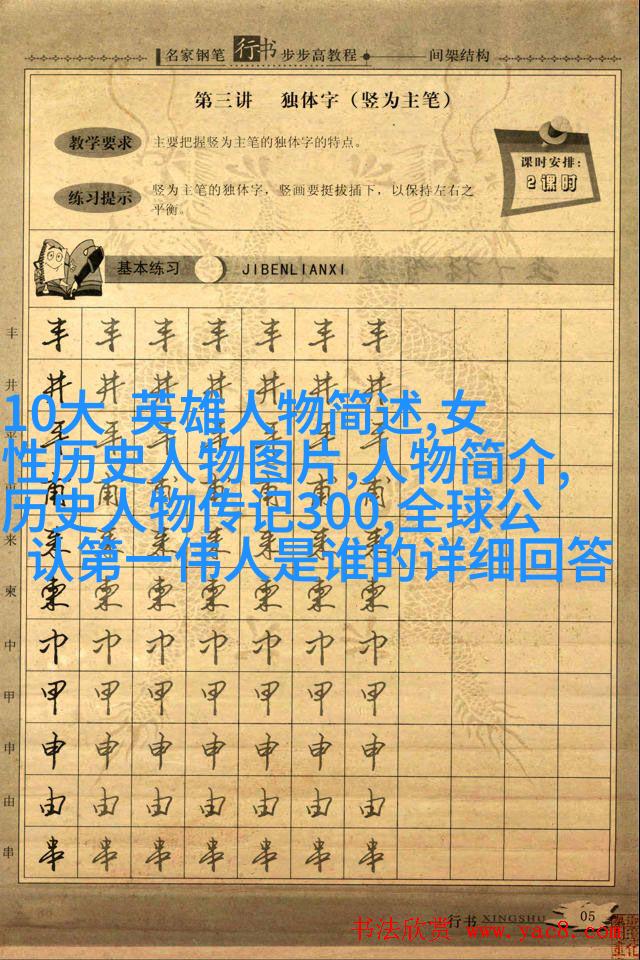 名家钢笔行书步步高教程 间架结构
第三讲 独体字（竖为主笔）
教学要求 主要把握竖为主笔的独体字的特点。
课时安排：
2课时
练习提示 竖为主笔的独体字，竖画要挺拔插下，以保持左右之
平衡。
基本练习 JIBENLIANXI
丰 丰 丰 丰 丰 丰 丰 丰
井 井 井 井 井 井 井 井
10大 英雄人物简述,女
性历史人物图片,人物简介,
历史人物传记300,全球公
认第一伟人是谁的详细回答
来
柬 柬 柬 柬 柬 柬 柬 柬
中 中 中 中 中 中 中 中
甲 甲 甲 甲 甲 甲 甲 甲
申 申 申 申 申 申 申 申
由 由 由 由 由 由 由 由
串 串 串 串 串 串 串 串
行书 XINGSHU 05
书法欣赏 www.yac8.com